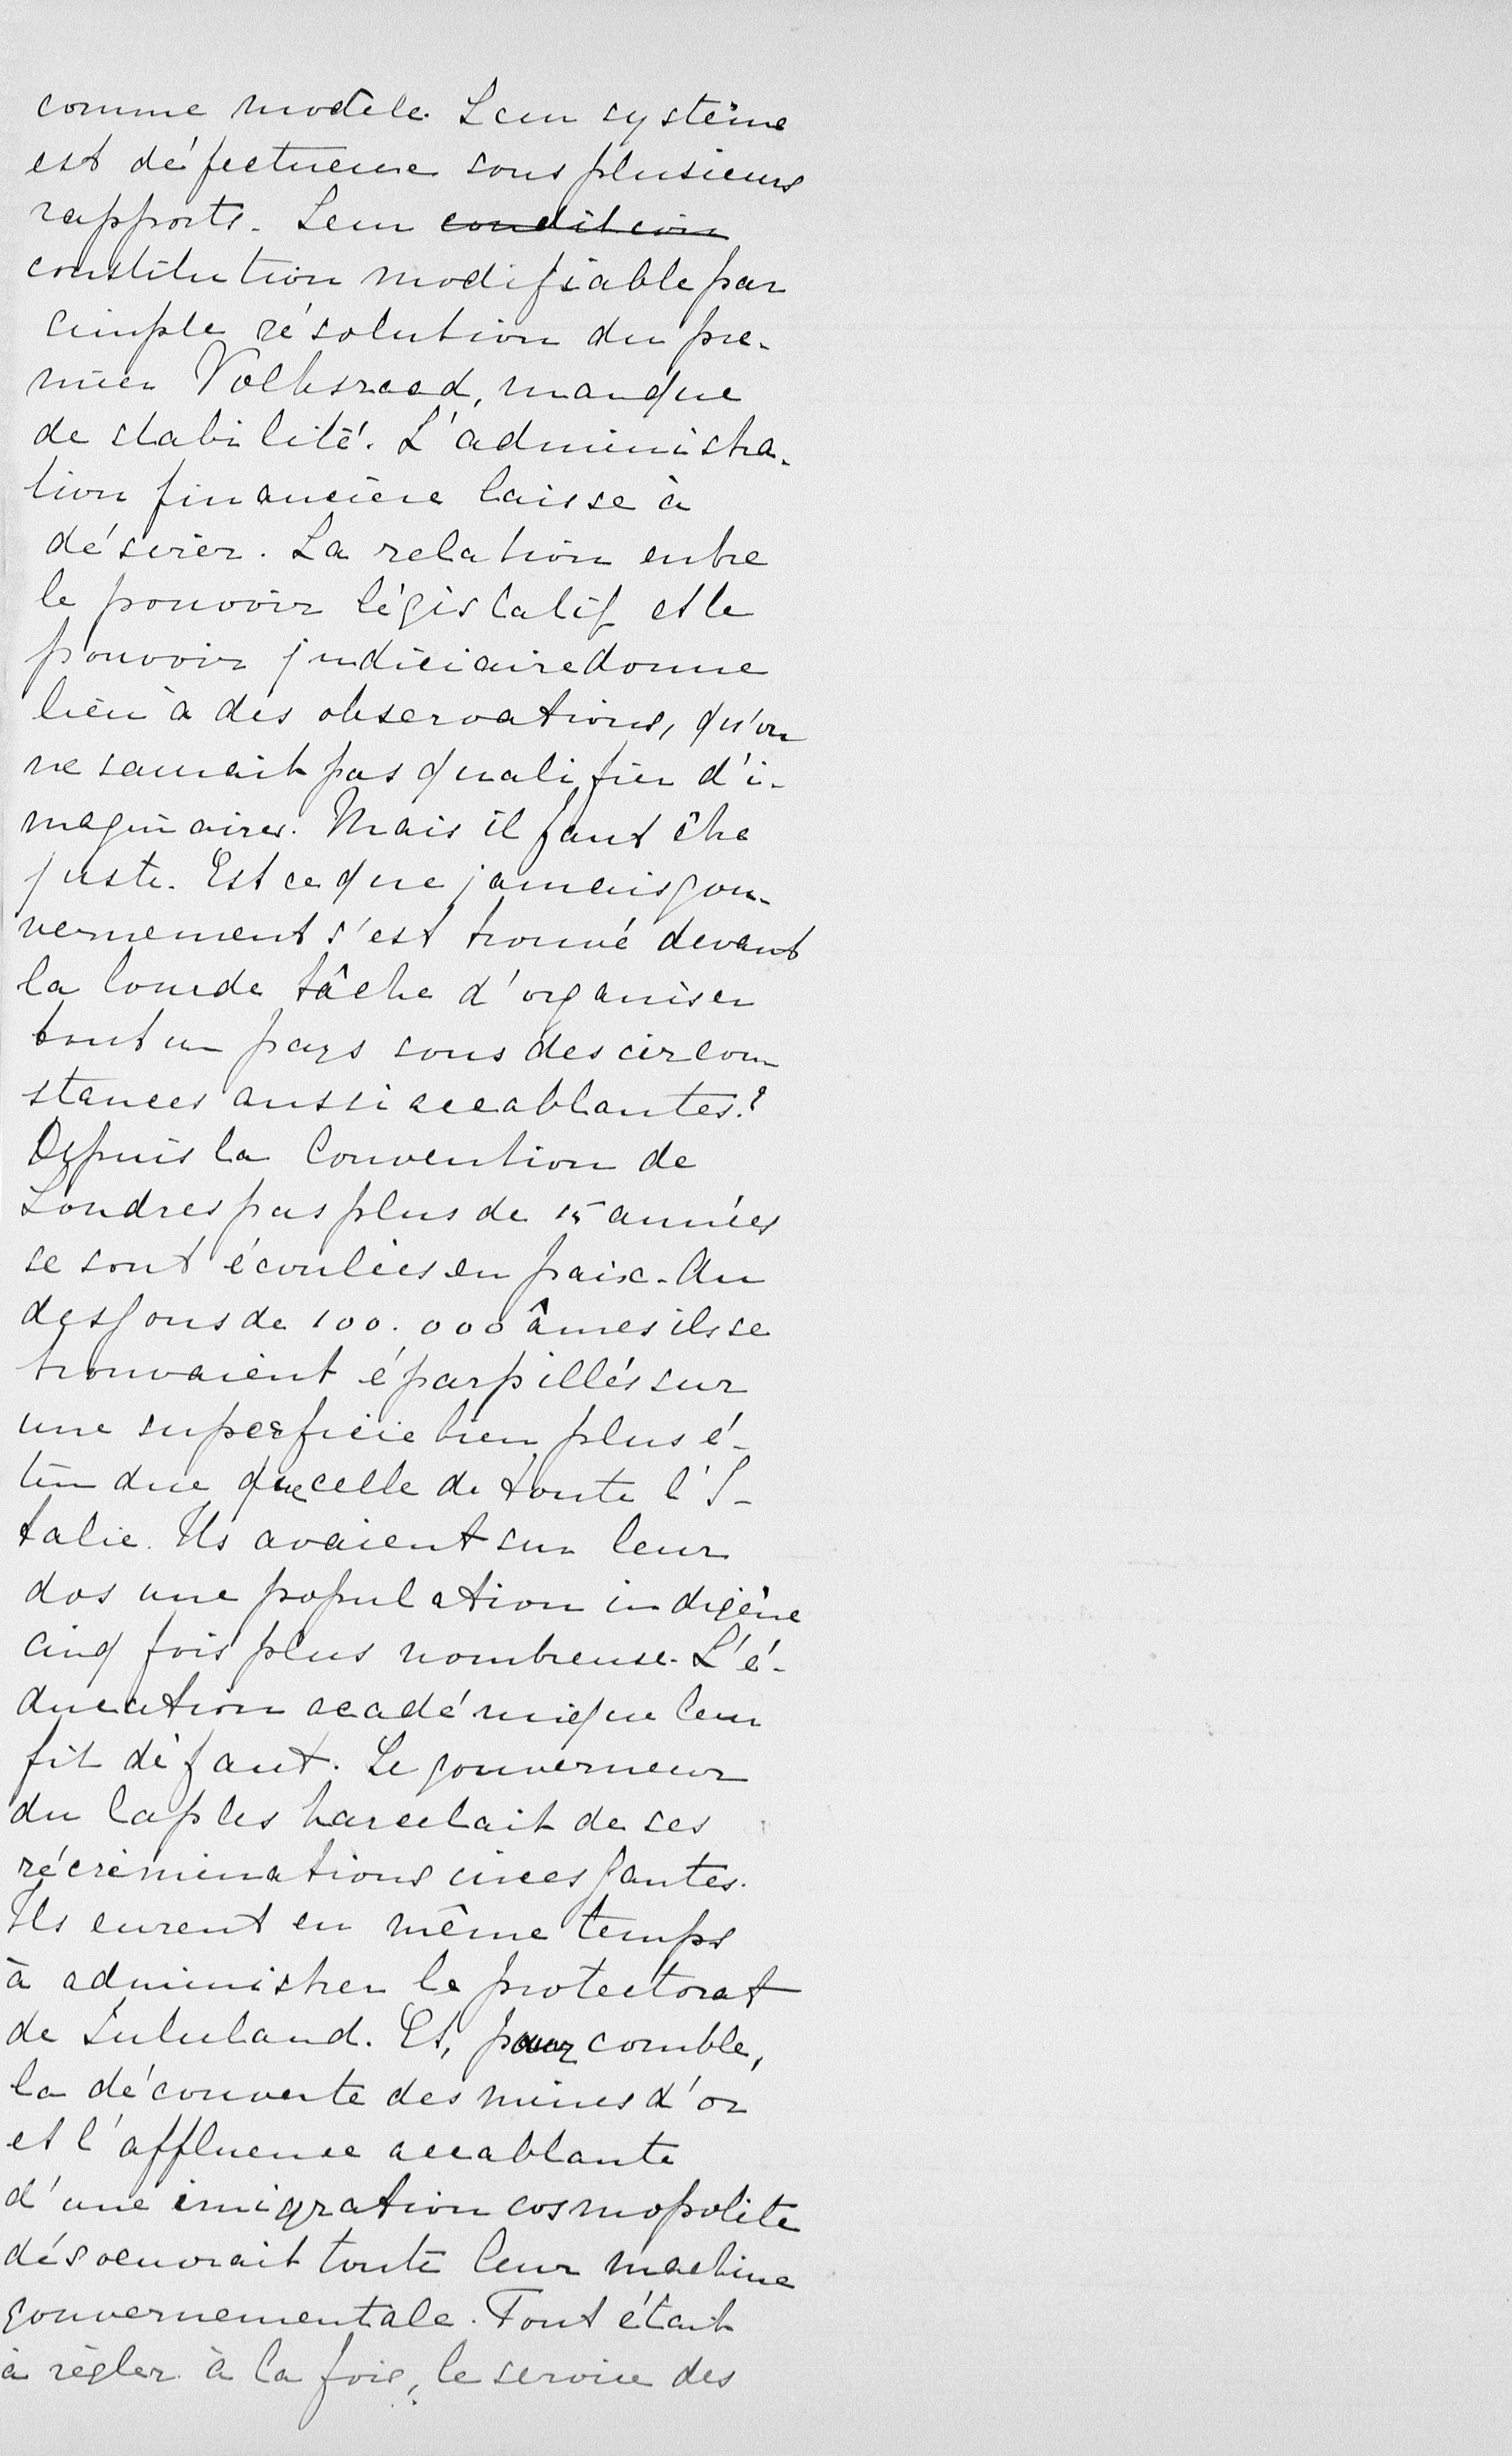 comme modèle. Leur système
est défectueuse sous plusieurs
rapports. Leur condition
constitution modifiable par
simple résolution du pre-
mier Volksraad, manque
de stabilité. L'administra-
tion financière laisse à
désirer. La relation entre
le pouvoir législatif et le
pouvoir judiciaire donne
lieu à des observations, qu'on
ne saurait pas qualifier d'i-
maginaires. Mais il faut être
juste. Est ce que jamais gou-
vernement s'est trouvé devant
la lourde tâche d'organiser
tout un pays sous des circon-
stances aussi accablantes?
Depuis la Convention de
Londres pas plus de 15 années
se sont écoulées en paix. Au
dessous de 100.000 âmes ils se
trouvaient éparpillés sur
une superficie bien plus é-
tendue que celle de toute l'I-
talie. Ils avaient sur leur
dos une population indigène
cinq fois plus nombreuse. L'é-
ducation académique leur
fit défaut. Le gouverneur
du Cap les harcelait de ses
récriminations incessantes.
Ils eurent en même temps
à administrer le protectorat
de Zululand. Et, pour comble,
la découverte des mines d'or
et l'affluence accablante
d'une imigration cosmopolite
désoeuvrait toute leur machine
gouvernementale. Tout était
à règler à la fois, le service des